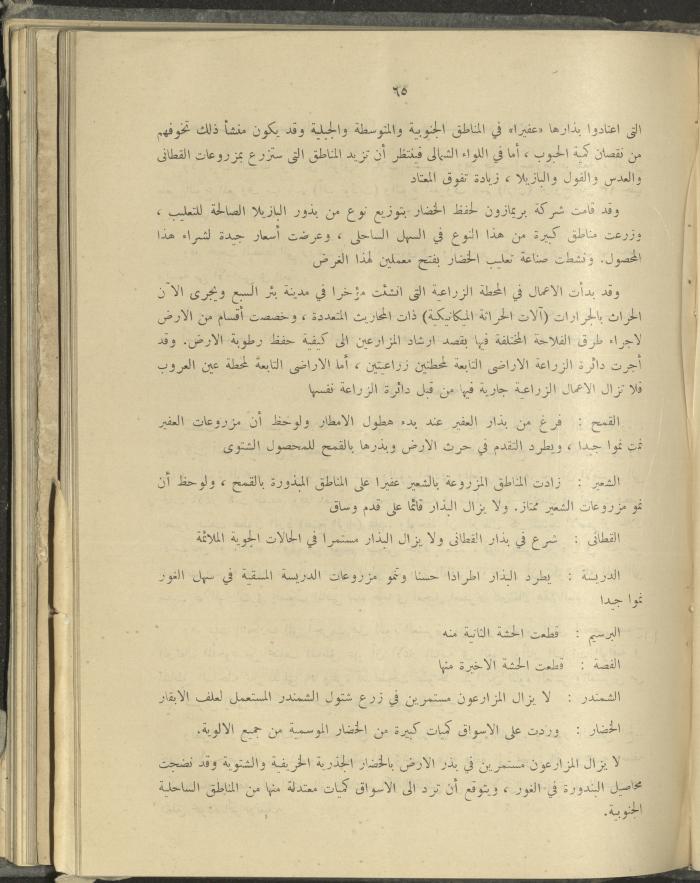 ٦٥
التى اعتادوا بذارها «عفيرا» في المناطق الجنوبية والمتوسطة والجبلية وقد يكون منشأ ذلك تخوفهم
من نقصان كمية الحبوب ، أما في اللواء الشمالى فينتظر أن تزيد المناطق التى ستزرع بمزروعات القطانى
والعدس والفول والبازيلا ، زيادة تفوق المعتاد
وقد قامت شركة بريمازون لحفظ الخضار بتوزيع نوع من بذور البازيلا الصالحة للتعليب ،
وزرعت مناطق كبيرة من هذا النوع في السهل الساحلى ، وعرضت أسعار جيدة لشراء هذا
المحصول. ونشطت صناعة تعليب الخضار بفتح معملين لهذا الغرض
وقد بدأت الاعمال في المحطة الزراعية التى انشئت مؤخرا في مدينة بئر السبع ويجرى الآن
الحراث بالجرارات (آلات الحراثة الميكانيكية) ذات المحاريث المتعددة ، وخصصت أقسام من الارض
لاجراء طرق الفلاحة المختلفة فيها بقصد ارشاد المزارعين الى كيفية حفظ رطوبة الارض. وقد
أجرت دائرة الزراعة الاراضى التابعة لمحطتين زراعيتين ، أما الاراضى التابعة لمحطة عين العروب
فلا تزال الاعمال الزراعية جارية فيها من قبل دائرة الزراعة نفسها
القمح : فرغ من بذار العفير عند بدء هطول الامطار ولوحظ أن مزروعات العفير
نمت نموا جيدا ، ويطرد التقدم في حرث الارض وبذرها بالقمح للمحصول الشتوى
الشعير : زادت المناطق المزروعة بالشعير عفيرا على المناطق المبذورة بالقمح ، ولوحظ أن
نمو مزروعات الشعير ممتاز. ولا يزال البذار قائما على قدم وساق
القطانى : شرع في بذار القطانى ولا يزال البذار مستمرا في الحالات الجوية الملائمة
الدريسة : يطرد البذار اطرادا حسنا وتنمو مزروعات الدريسة المسقية في سهل الغور
نموا جيدا
البرسيم : قطعت الحشة الثانية منه
الفصة : قطعت الحشة الاخيرة منها
الشمندر : لا يزال المزارعون مستمرين في زرع شتول الشمندر المستعمل لعلف الابقار
الخضار : وردت على الاسواق كميات كبيرة من الخضار الموسمية من جميع الالوية.
لا يزال المزارعون مستمرين في بذر الارض بالخضار الجذرية الخريفية والشتوية وقد نضجت
محاصيل البندورة في الغور ، ويتوقع أن ترد الى الاسواق كميات معتدلة منها من المناطق الساحلية
الجنوبية.